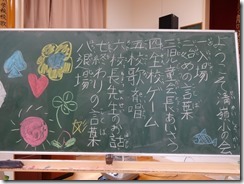 ようこそ清領小会
一入場
二始めの言葉
三児童会長あいさつ
四全校ゲーム
五校歌斉唱
六校長先生のお話
七終わりの言葉
八退場